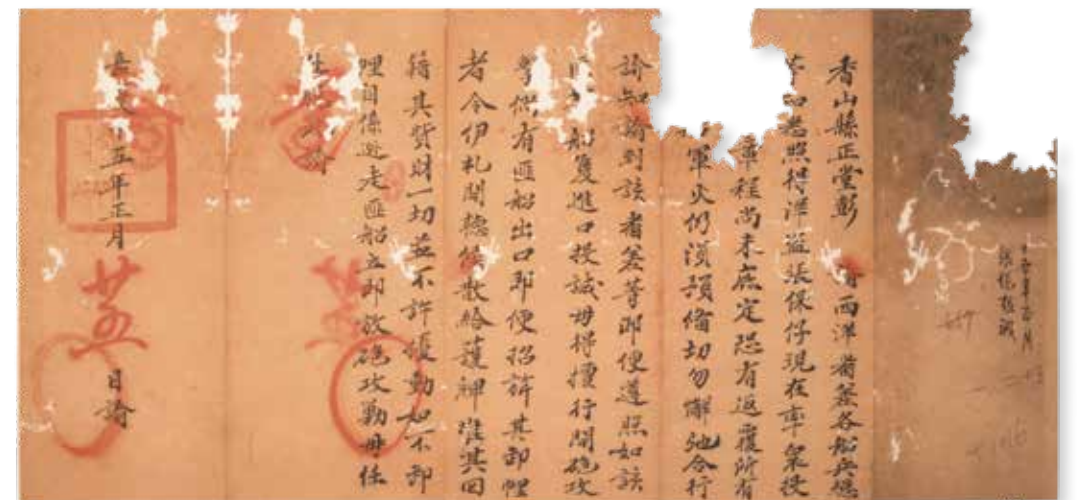 十五年正月
張保投誠
香山縣正堂彭 西洋番差各船兵總
等知悉照得洋盜張保仔現在率衆投
章程尚未底定恐有返覆所有
軍火仍須預備切勿懈弛合行
諭知諭到該番差等即便遵照如該
船隻進口投誠毋得擅行開砲攻
擊倘有匪船出口即便招詳其即哩
者令伊扎開聽候散給護牌准其回
籍其貨財一切並不許擾動如不即
哩自係逃走匪船立即放砲攻勦毋任
諭
五年正月 日諭